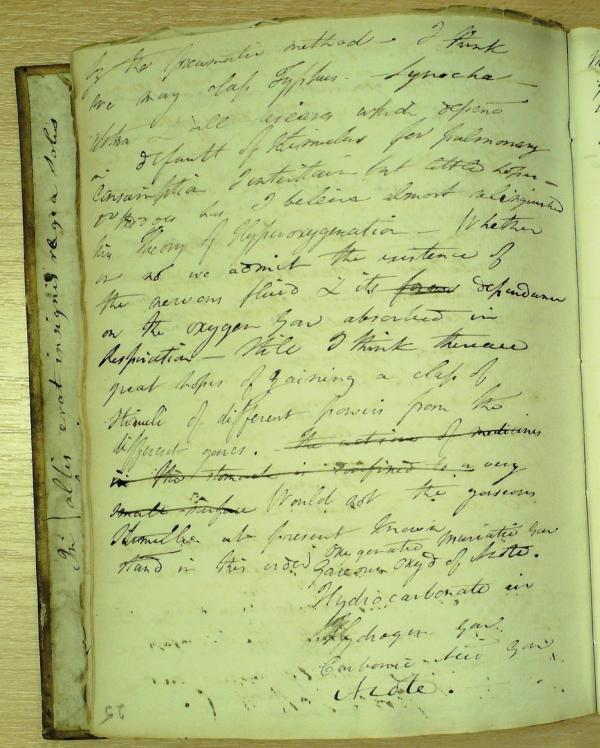 by the pneumatic method. I think
we may class Typhus. Synocha —
all diseases which depend
default of Stimulus for pulmonary
consumption I entertain but little hopes —
has I believe almost relinquished
his Theory of Hyperoxygenation — Whether
or no we admit the existence of
the nervous fluid & its power dependence
on the oxygen Gas absorbed in
Respiration — still I think there are
great hopes of gaining a class of
Stimuli of different powers from the
different gases. The actions of medicines
in the stomach is confined to a very
small surface Would not the gaseous
Stimuli at present known
stand in this order oxygenated muriatic Gas
Gaseous Oxyd of Azote.
Hydrocarbonate air
Hydrogen Gas.
Carbonic Acid Gas
Azote.
altis erat insignis regia Solis
25